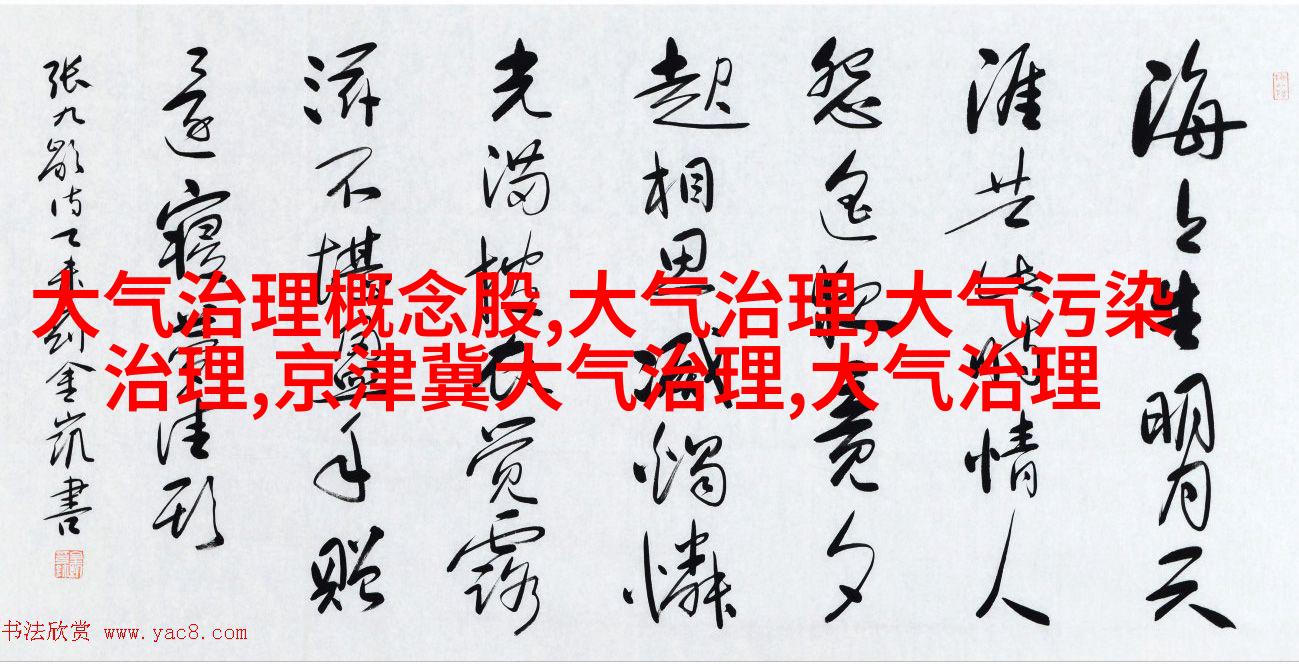 海上生明月天
涯共此時情人
怨遥夜竟夕
起相思滅燭憐
光满披衣觉露
滋不堪盈手贈
還寝夢佳期
张九龄诗乙未刘金凯書
大气治理概念股,大气治理,大气污染
治理,京津冀大气治理,大气治理
书法欣赏 www.yac8.com